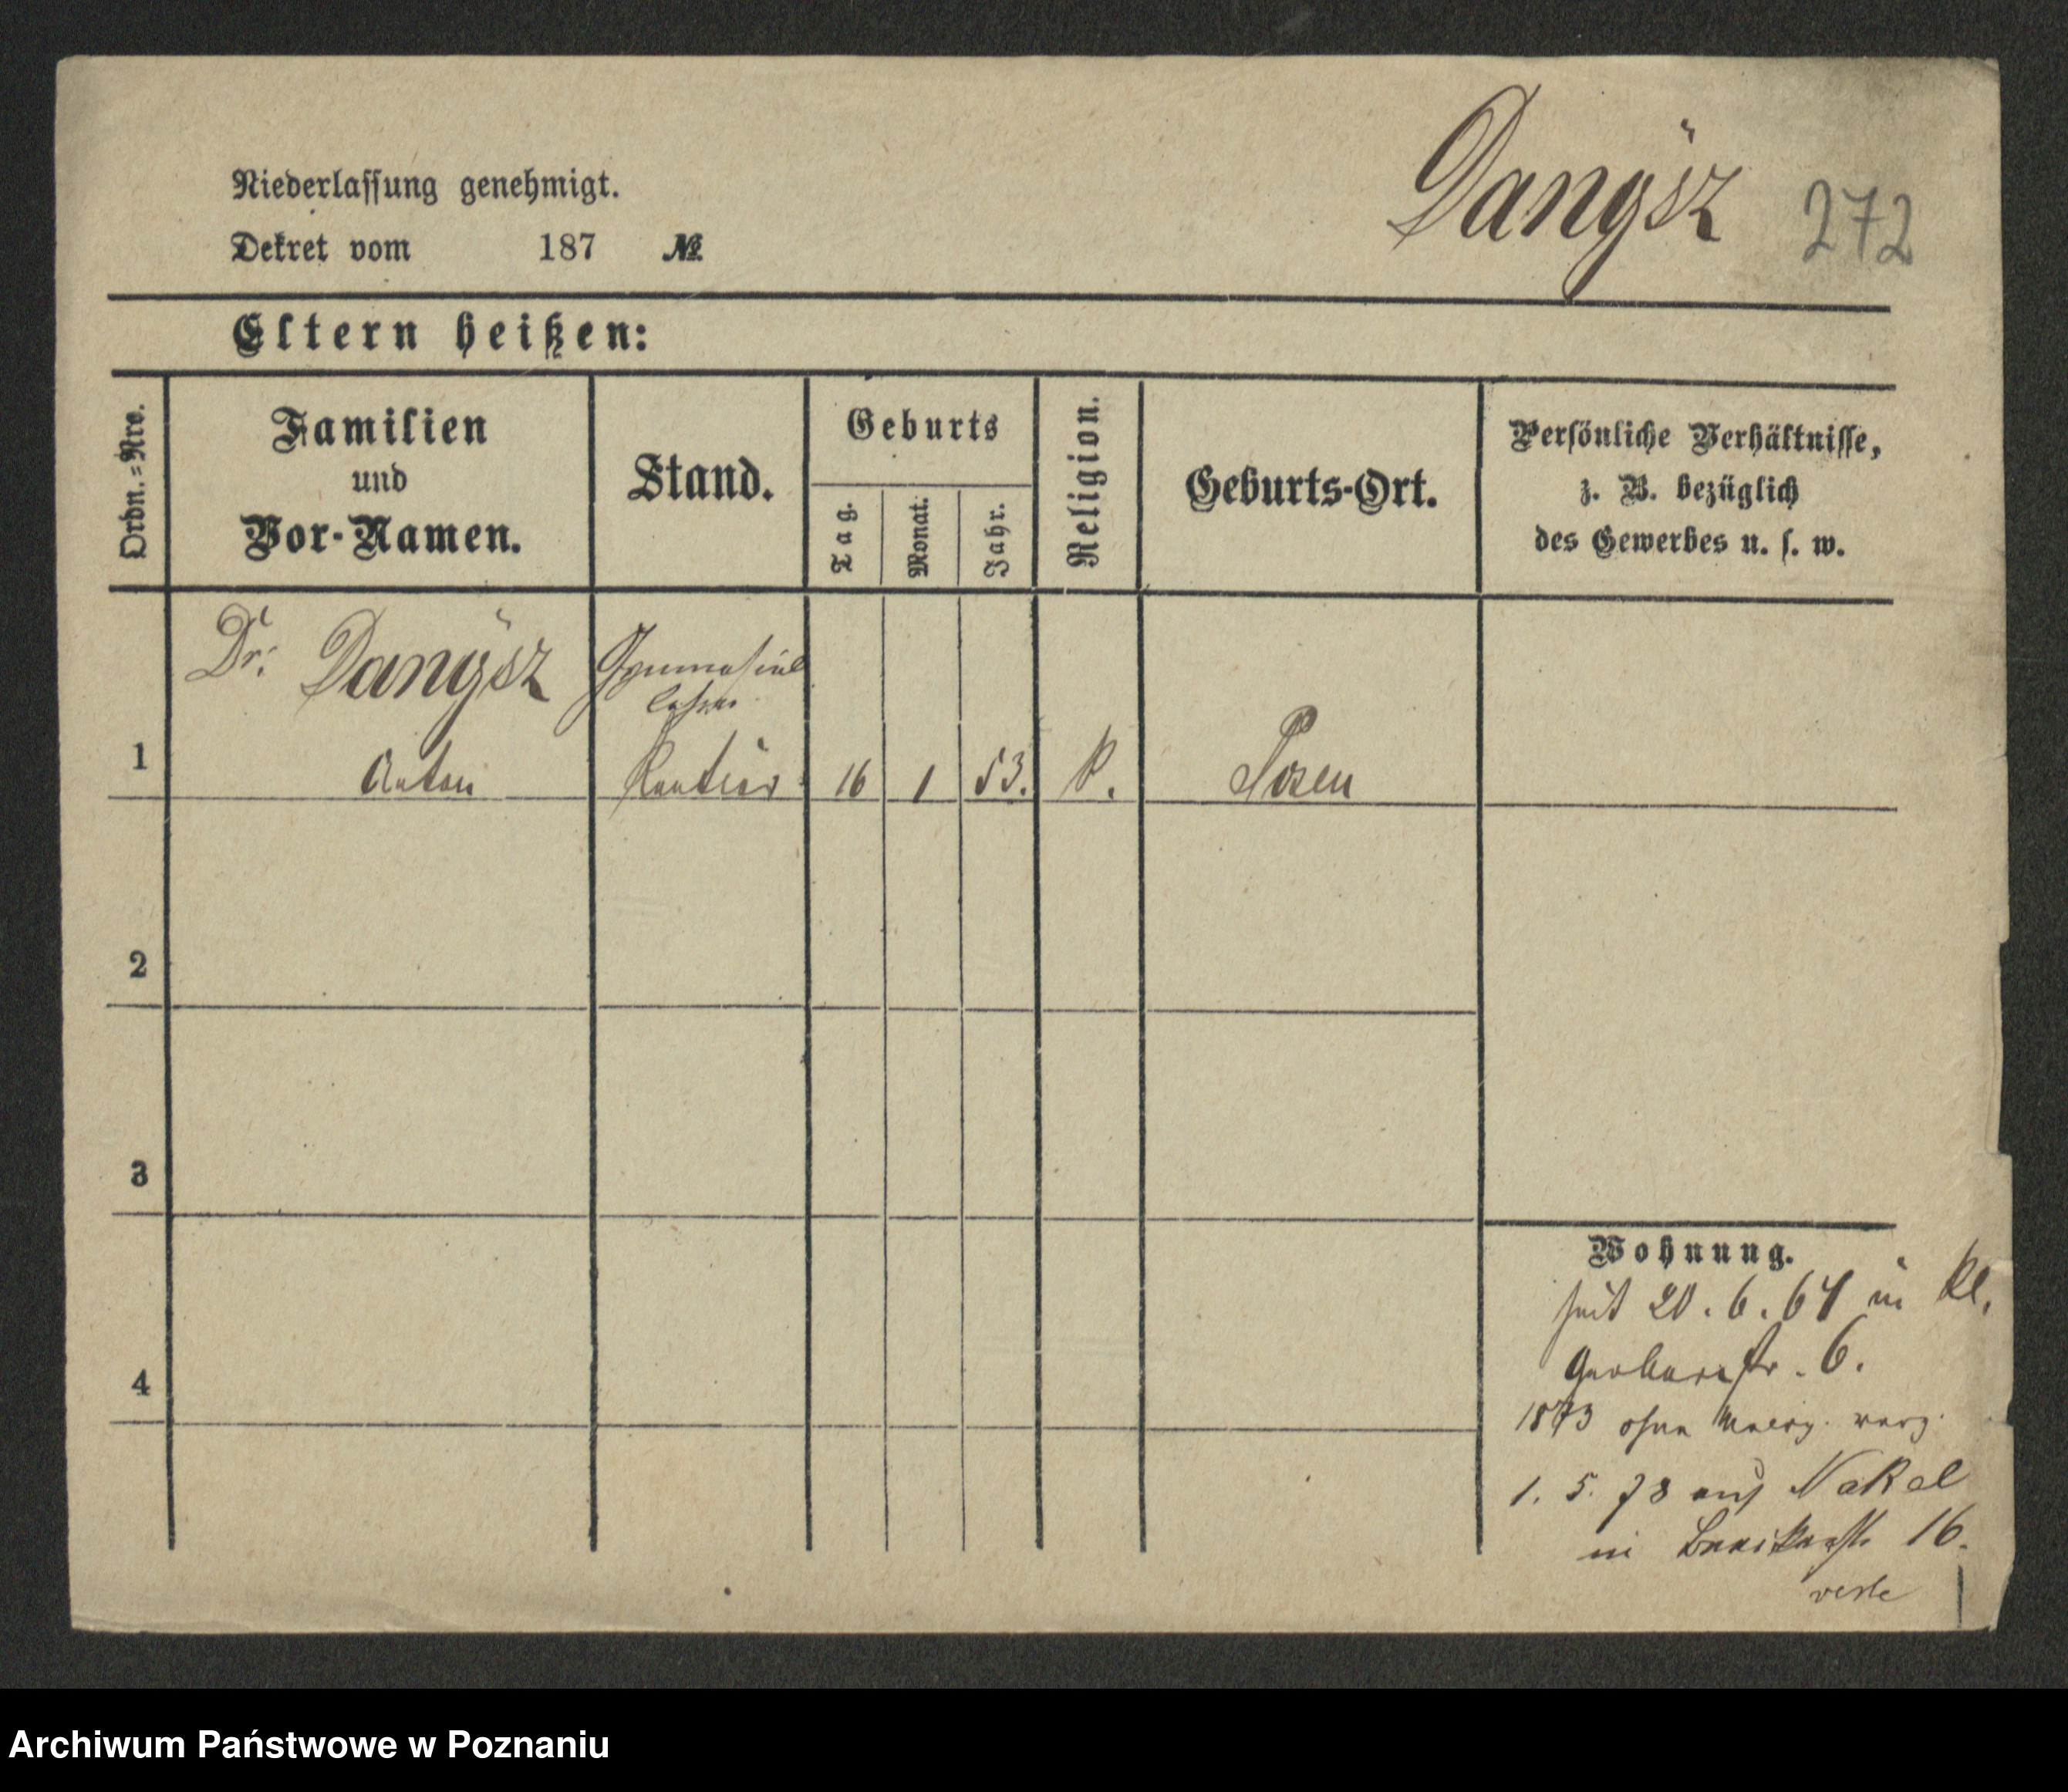 Dangÿsz 272
Niederlassung genehmigt.
Dekret vom 187 №
Eltern heißen:
Ordn.=Nro.
Familien
und
Vor-Namen.
Stand.
Geburts
Tag.
Monat.
Jahr.
Religion.
Geburts-Ort.
Persönliche Verhältnisse,
z. B. bezüglich
des Gewerbes u. s. w.
Dr. Dangÿsz Gymnasial
lehrer
1 Anton 16 1 53. K. Posen
2
3
4
Wohnung.
seit 20. 6. 64 in Kl.
Gerberstr. 6.
1873 ohne
1. 5. 78 aus Nakel
in 16.
verte
Archiwum Państwowe w Poznaniu